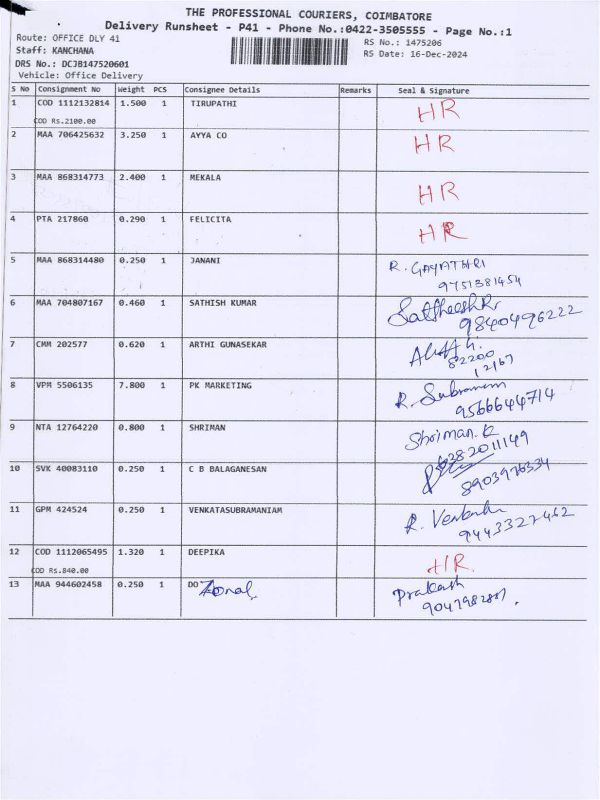 THE PROFESSIONAL COURIERS, COIMBATORE
Delivery Runsheet - P41 - Phone No.:0422-3505555 - Page No.:1
Route: OFFICE DLY 41 RS No.: 1475206
Staff: KANCHANA RS Date: 16-Dec-2024
DRS No.: DCJB147520601
Vehicle: Office Delivery
S No Consignment No Weight PCS Consignee Details Remarks Seal & Signature
1 COD 1112132814 1.500 1 TIRUPATHI HR
COD Rs.2100.00
2 MAA 706425632 3.250 1 AYYA CO HR
3 MAA 868314773 2.400 1 MEKALA HR
4 PTA 217860 0.290 1 FELICITA HR
5 MAA 868314480 0.250 1 JANANI R. GAYATHRI
9751381454
6 MAA 704807167 0.460 1 SATHISH KUMAR
9840496222
7 CMM 202577 0.620 1 ARTHI GUNASEKAR
82200
12167
8 VPM 5506135 7.800 1 PK MARKETING R. Subramani
9566644714
9 NTA 12764220 0.800 1 SHRIMAN Shriman. R
6382011149
10 SVK 40083110 0.250 1 C B BALAGANESAN
8903976334
11 GPM 424524 0.250 1 VENKATASUBRAMANIAM
9443327462
12 COD 1112065495 1.320 1 DEEPIKA HR.
COD Rs.840.00
13 MAA 944602458 0.250 1 DO Zonal Prakash